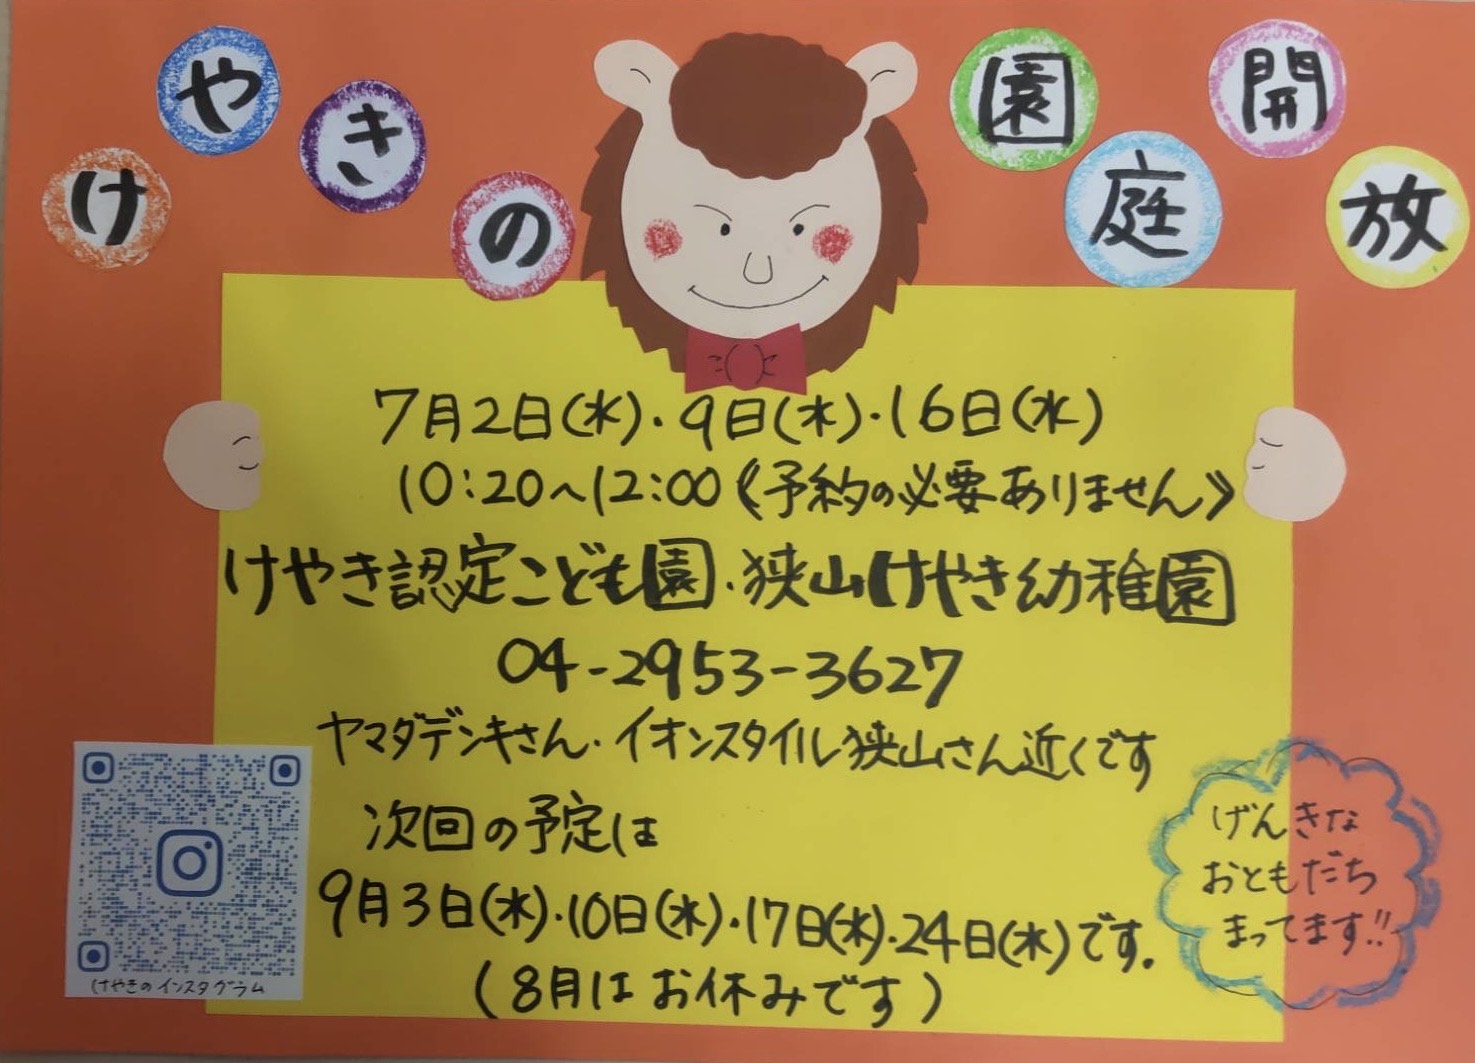 けやきの園庭開放
7月2日(水)・9日(水)・16日(水)
10:20〜12:00《予約の必要ありません》
けやき認定こども園・狭山けやき幼稚園
04-2953-3627
ヤマダデンキさん・イオンスタイル狭山さん近くです
次回の予定は
9月3日(水)・10日(水)・17日(水)・24日(水)です。
(8月はお休みです)
けやきのインスタグラム
げんきな
おともだち
まってます!!